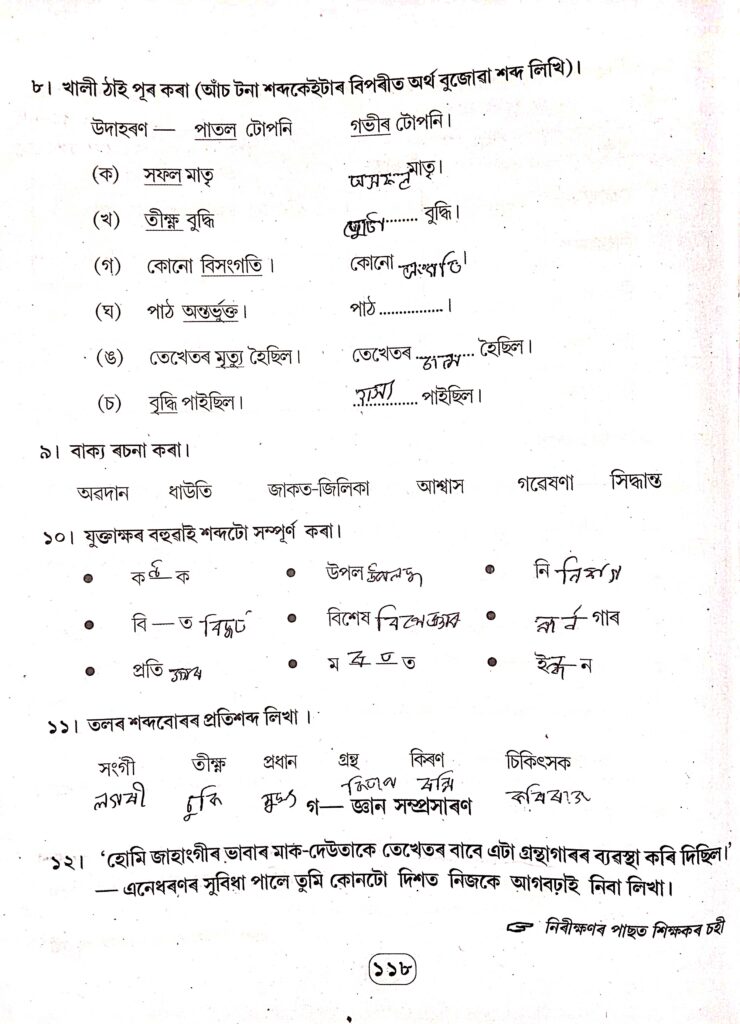 ৮। খালী ঠাই পূৰ কৰা (আঁচ টনা শব্দকেইটাৰ বিপৰীত অৰ্থ বুজোৱা শব্দ লিখি)।
উদাহৰণ — পাতল টোপনি গভীৰ টোপনি।
(ক) সফল মাতৃ অসফল মাতৃ।
(খ) তীক্ষ্ণ বুদ্ধি ভোটা ........ বুদ্ধি।
(গ) কোনো বিসংগতি। কোনো সংগতি।
(ঘ) পাঠ অন্তৰ্ভুক্ত। পাঠ ................।
(ঙ) তেখেতৰ মৃত্যু হৈছিল। তেখেতৰ .......... হৈছিল।
(চ) বৃদ্ধি পাইছিল। ............ পাইছিল।
৯। বাক্য ৰচনা কৰা।
অৱদান ধাউতি জাকত-জিলিকা আশ্বাস গৱেষণা সিদ্ধান্ত
১০। যুক্তাক্ষৰ বহুৱাই শব্দটো সম্পূৰ্ণ কৰা।
• ক — ক • উপল • নি
• বি — ত • বিশেষ • গাৰ
• প্ৰতি • ম — ত • ই ন্ধ ন
১১। তলৰ শব্দবোৰৰ প্ৰতিশব্দ লিখা।
সংগী তীক্ষ্ণ প্ৰধান গ্ৰন্থ কিৰণ চিকিৎসক
লগৰী মুখ্য কিতাপ ৰশ্মি কবিৰাজ
গ— জ্ঞান সম্প্ৰসাৰণ
১২। ‘হোমি জাহাংগীৰ ভাবাৰ মাক-দেউতাকে তেখেতৰ বাবে এটা গ্ৰন্থাগাৰৰ ব্যৱস্থা কৰি দিছিল।’
— এনেধৰণৰ সুবিধা পালে তুমি কোনটো দিশত নিজকে আগবঢ়াই নিবা লিখা।
☞ নিৰীক্ষণৰ পাছত শিক্ষকৰ চহী
১১৮